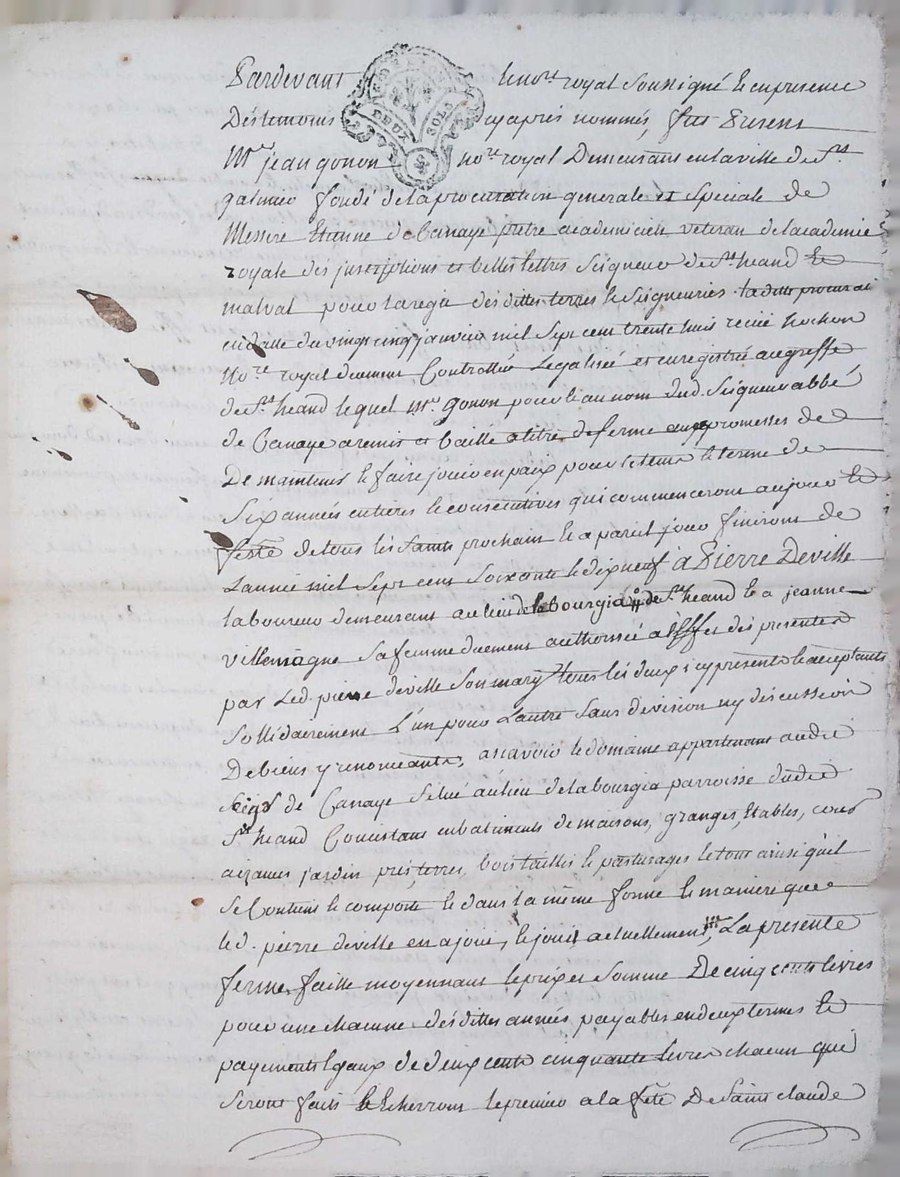 Pardevant le no.re royal soussigné & en presence
Des temoins cy apres nommés, fut Present
M.re jean gonon no.re royal Demeurant en la ville de S.t
galmier fondé de la procuration generale et speciale de
Messire Etienne de Canaye pretre academicien veteran de l'academie
royale des jnscriptions et belles lettres Seigneur de S.t heand &
malval pour la regie des dittes terres & Seigneuries la ditte procurat
en datte du vingt cinq janvier mil sept cent trente huit reçue hochon
no.re royal duement Controllée Legalisée et enregistrée au greffe
de S.t heand lequel m.re gonon pour & au nom dud. Seigneur abbé
de Canaye a remis et baillé a titre de ferme aux promesses de
De maintenir & faire jouir en paix pour le tems & terme de
Six années entieres & consecutives qui commenceront au jour &
feste de tous les Saints prochain & a pareil jour finiront de
L'année mil Sept cent Soixante & dix neuf à Pierre Deville
laboureur demeurant au lieu de la bourgia de S.t heand & a jeanne
villemagne sa femme duement authorisée a l'effet des presentes
par Led. pierre deville son mary tous les deux icy presents & acceptants
Sollidairement L'un pour L'autre sans division ny discussion
De biens y renonceants, assavoir le domaine appartenant audit
Seig.r de Canaye situé au lieu de la bourgia parroisse dudit
S.t heand Consistant en batiments de maisons, granges, Etables, cour
aizances jardin prés terres, bois taillis & pasturages le tout ainsi qu'il
Se Contient & comporte & dans la même forme & maniere que
led. pierre deville en a joui, & jouit actuellement, La presente
ferme faitte moyennant le prix et somme De cinq cents livres
pour une chacune des dittes années, payables en deux termes &
payements Egaux de deux cents cinquante Livres chacun qui
seront faits & Echerront le premier a la fête De Saint Claude